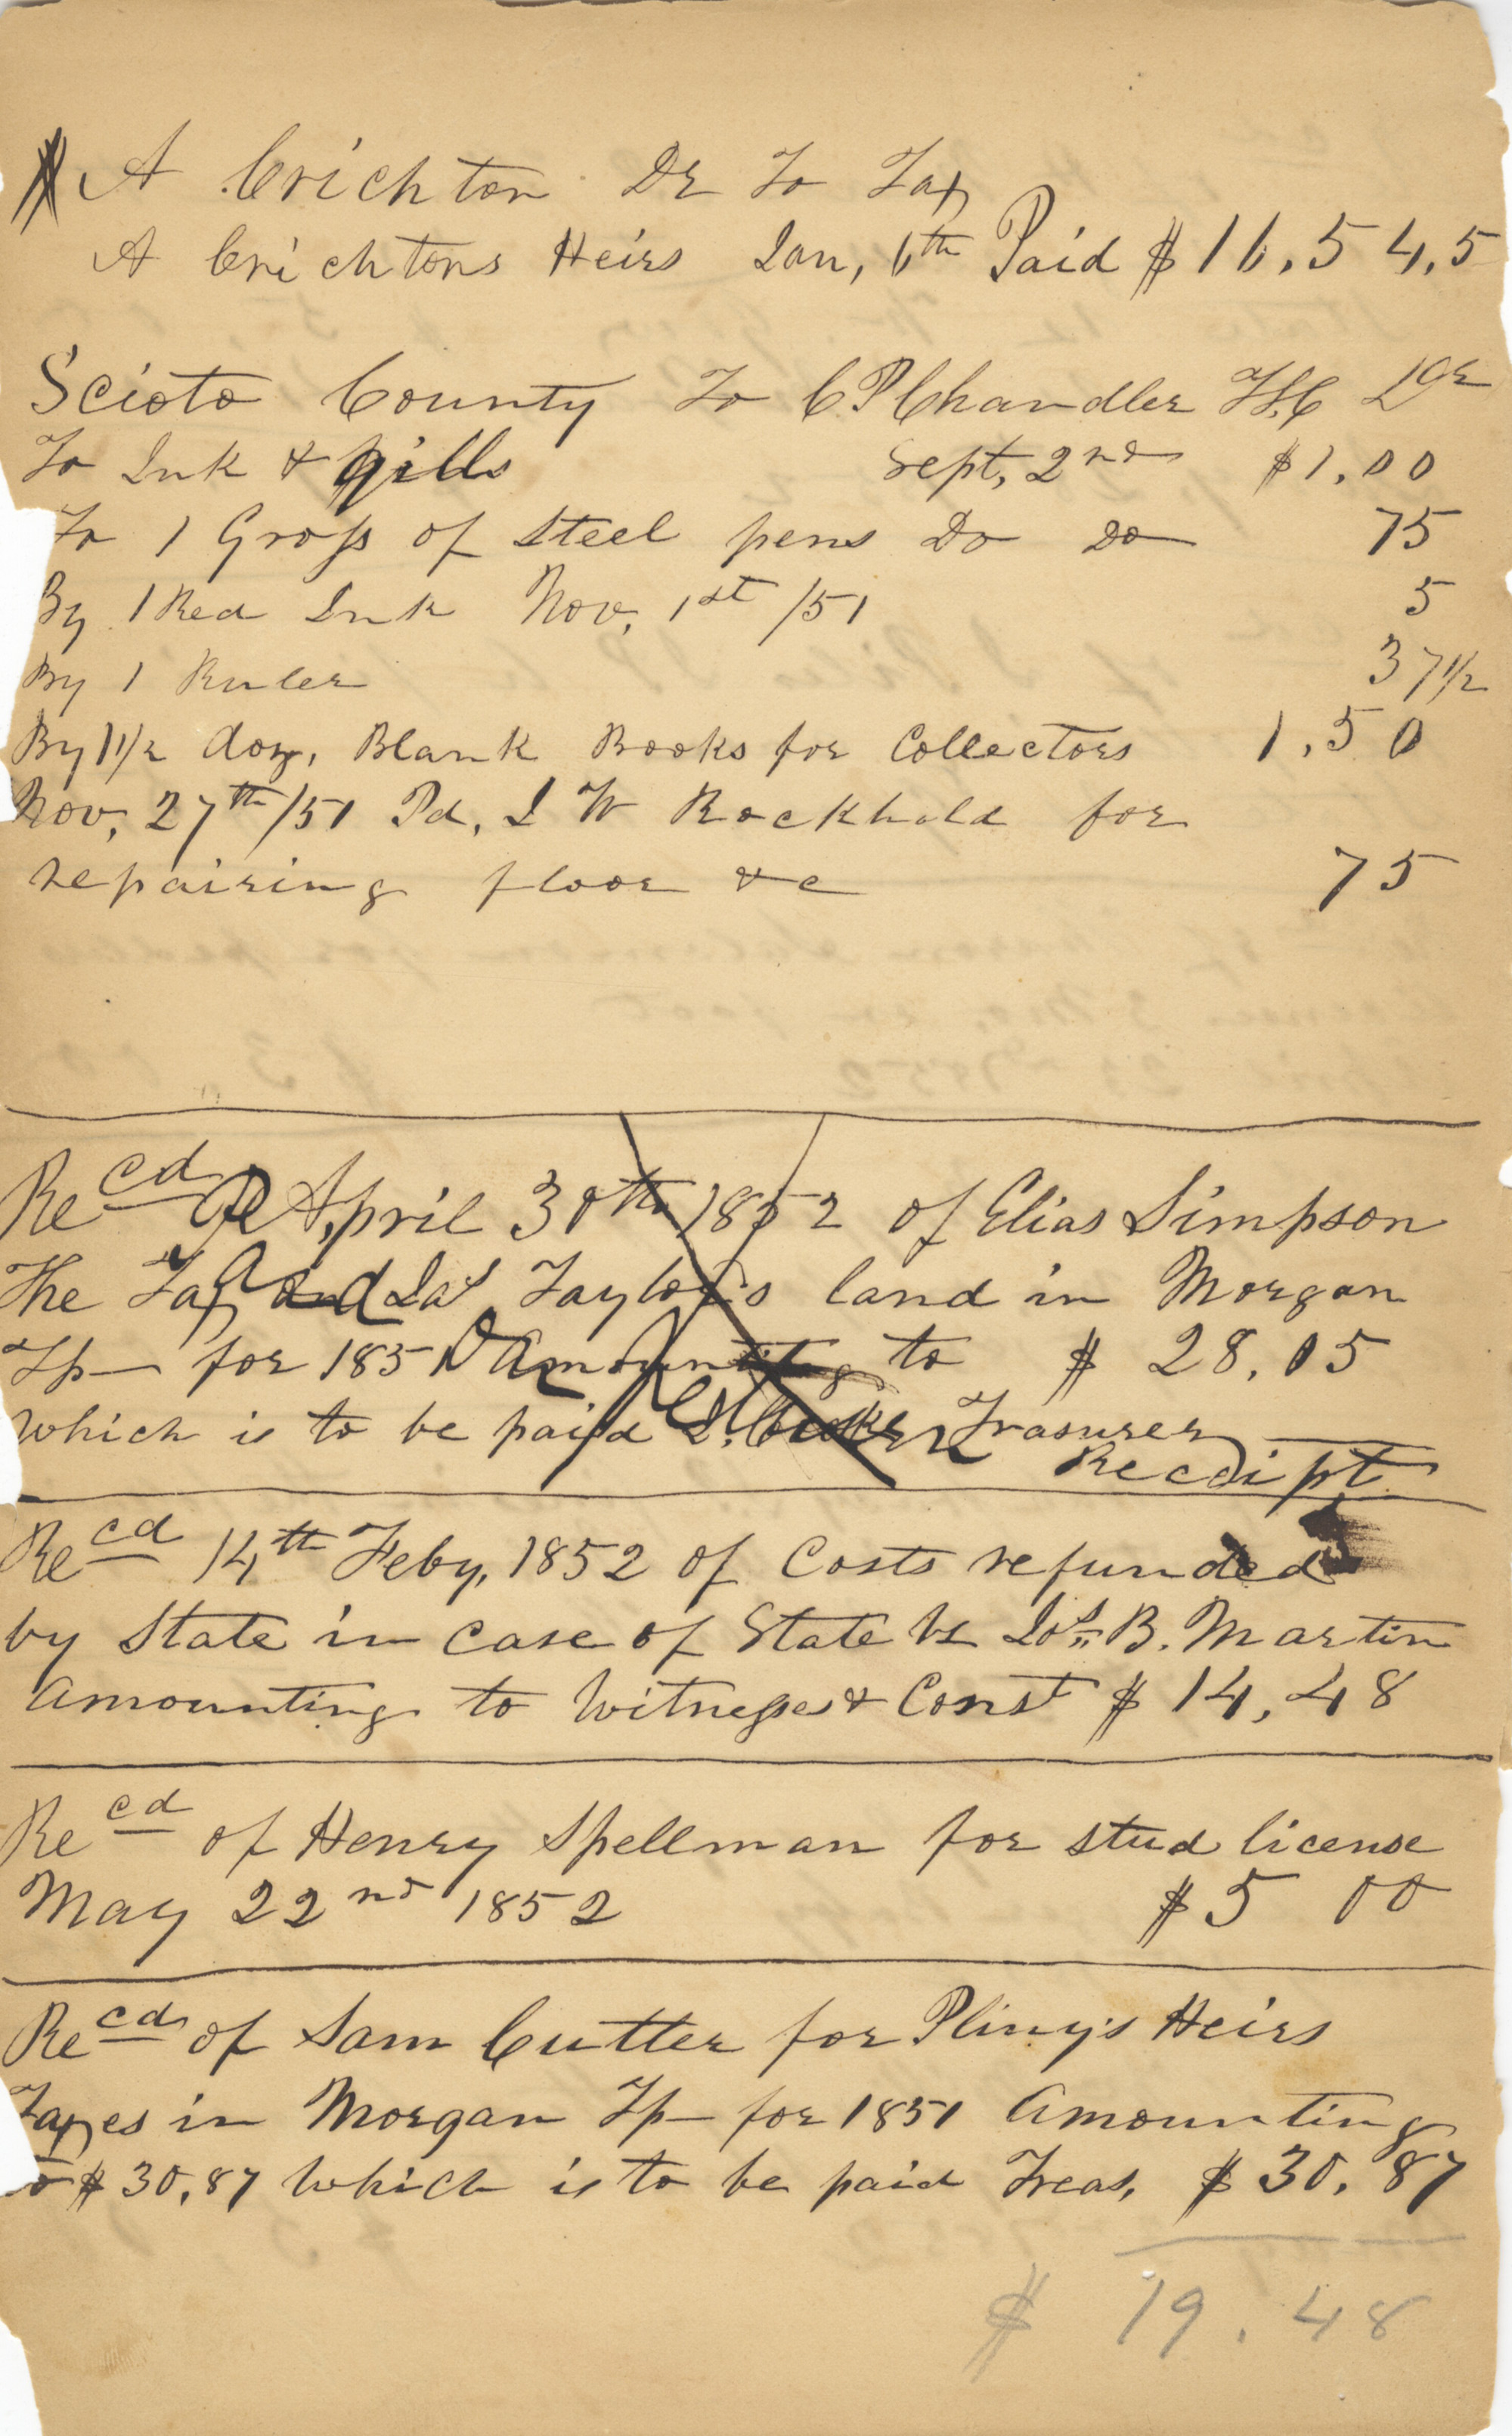 A Crichton Dr To Tax
A Crichtons Heirs Jan, 6th Paid $ 16.54,5
Scioto County To C P Chandler Dr
To Ink & quills Sept, 2nd $1.00
To 1 Gross of Steel pens Do Do 75
By 1 Red Ink Nov, 1st /51 5
By 1 Ruler 37 1/2
By 1 1/2 doz, Blank Books for Collectors 1.50
Nov, 27th /51 Pd, J W Rockhold for
repairing floor &c 75
Recd April 30th 1852 of Elias Simpson
The Tax Taylor's land in Morgan
Tp for 1851 Amounting to $ 28.05
which is to be paid Trasurer
Receipt
Recd 14th Feby, 1852 of Costs refunded
by State in case of State Vs Jos B. Martin
Amounting to Witnesses & Const $ 14.48
Recd of Henry Spellman for stud license
May 22nd 1852 $ 5 00
Recd of Sam Cutter for Pliny's Heirs
Taxes in Morgan Tp for 1851 Amounting
to $ 30.87 which is to be paid Treas, $ 30.87
$ 19.48